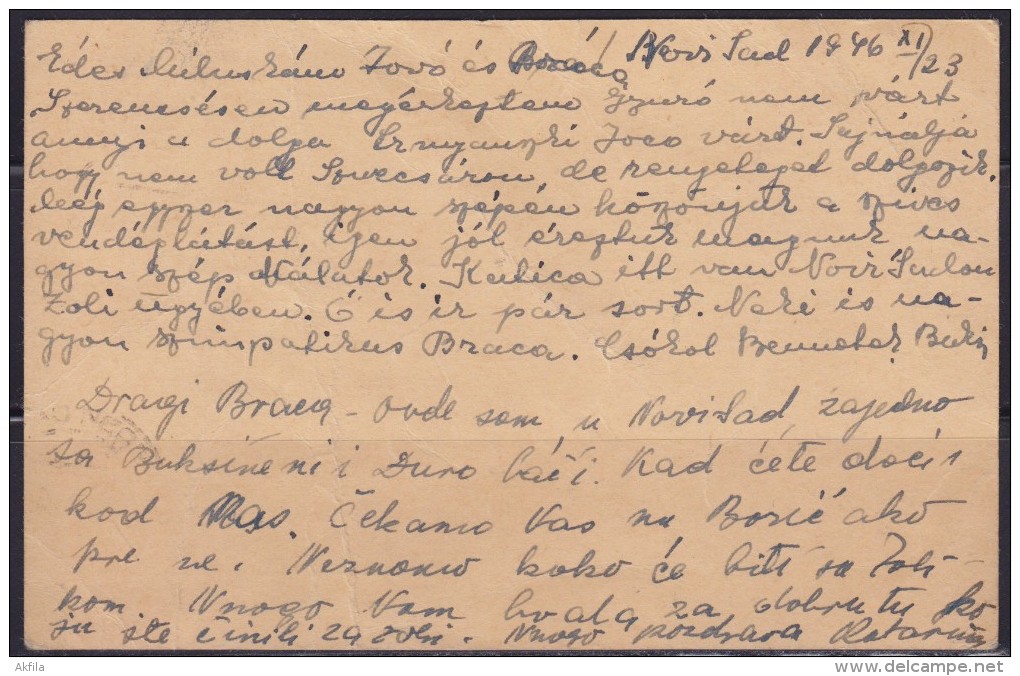 Novi Sad 1946 XI/23
Édes Liluskám Jovó és Braca
Szerencsésen megérkeztem Gyuró nem várt
annyi a dolga Joco várt. Sajnálja
hogy nem volt de rengeteget dolgozik.
Még egyszer nagyon szépen köszönjük a szives
vendéglátást, igen jól éreztük magunk na-
gyon szép Nálatok. Katica itt van Novi Sadon
Zoli ügyében. Ő is ir pár sort. Neki is na-
gyon szimpatikus Braca. Csókol Benneteket
Dragi Braca – ovde sam u Novi Sad, zajedno
sa Buksineni i Duro báči. Kad ćete doći
kod Nas. Čekamo Vas na Božić ako
pre ne. Neznamo kako će biti sa Zoli-
kom. Mnogo Vam hvala za dobrotu ko
ju ste činili za Zoli. Mnogo pozdrava
Akfila
www.delcampe.net